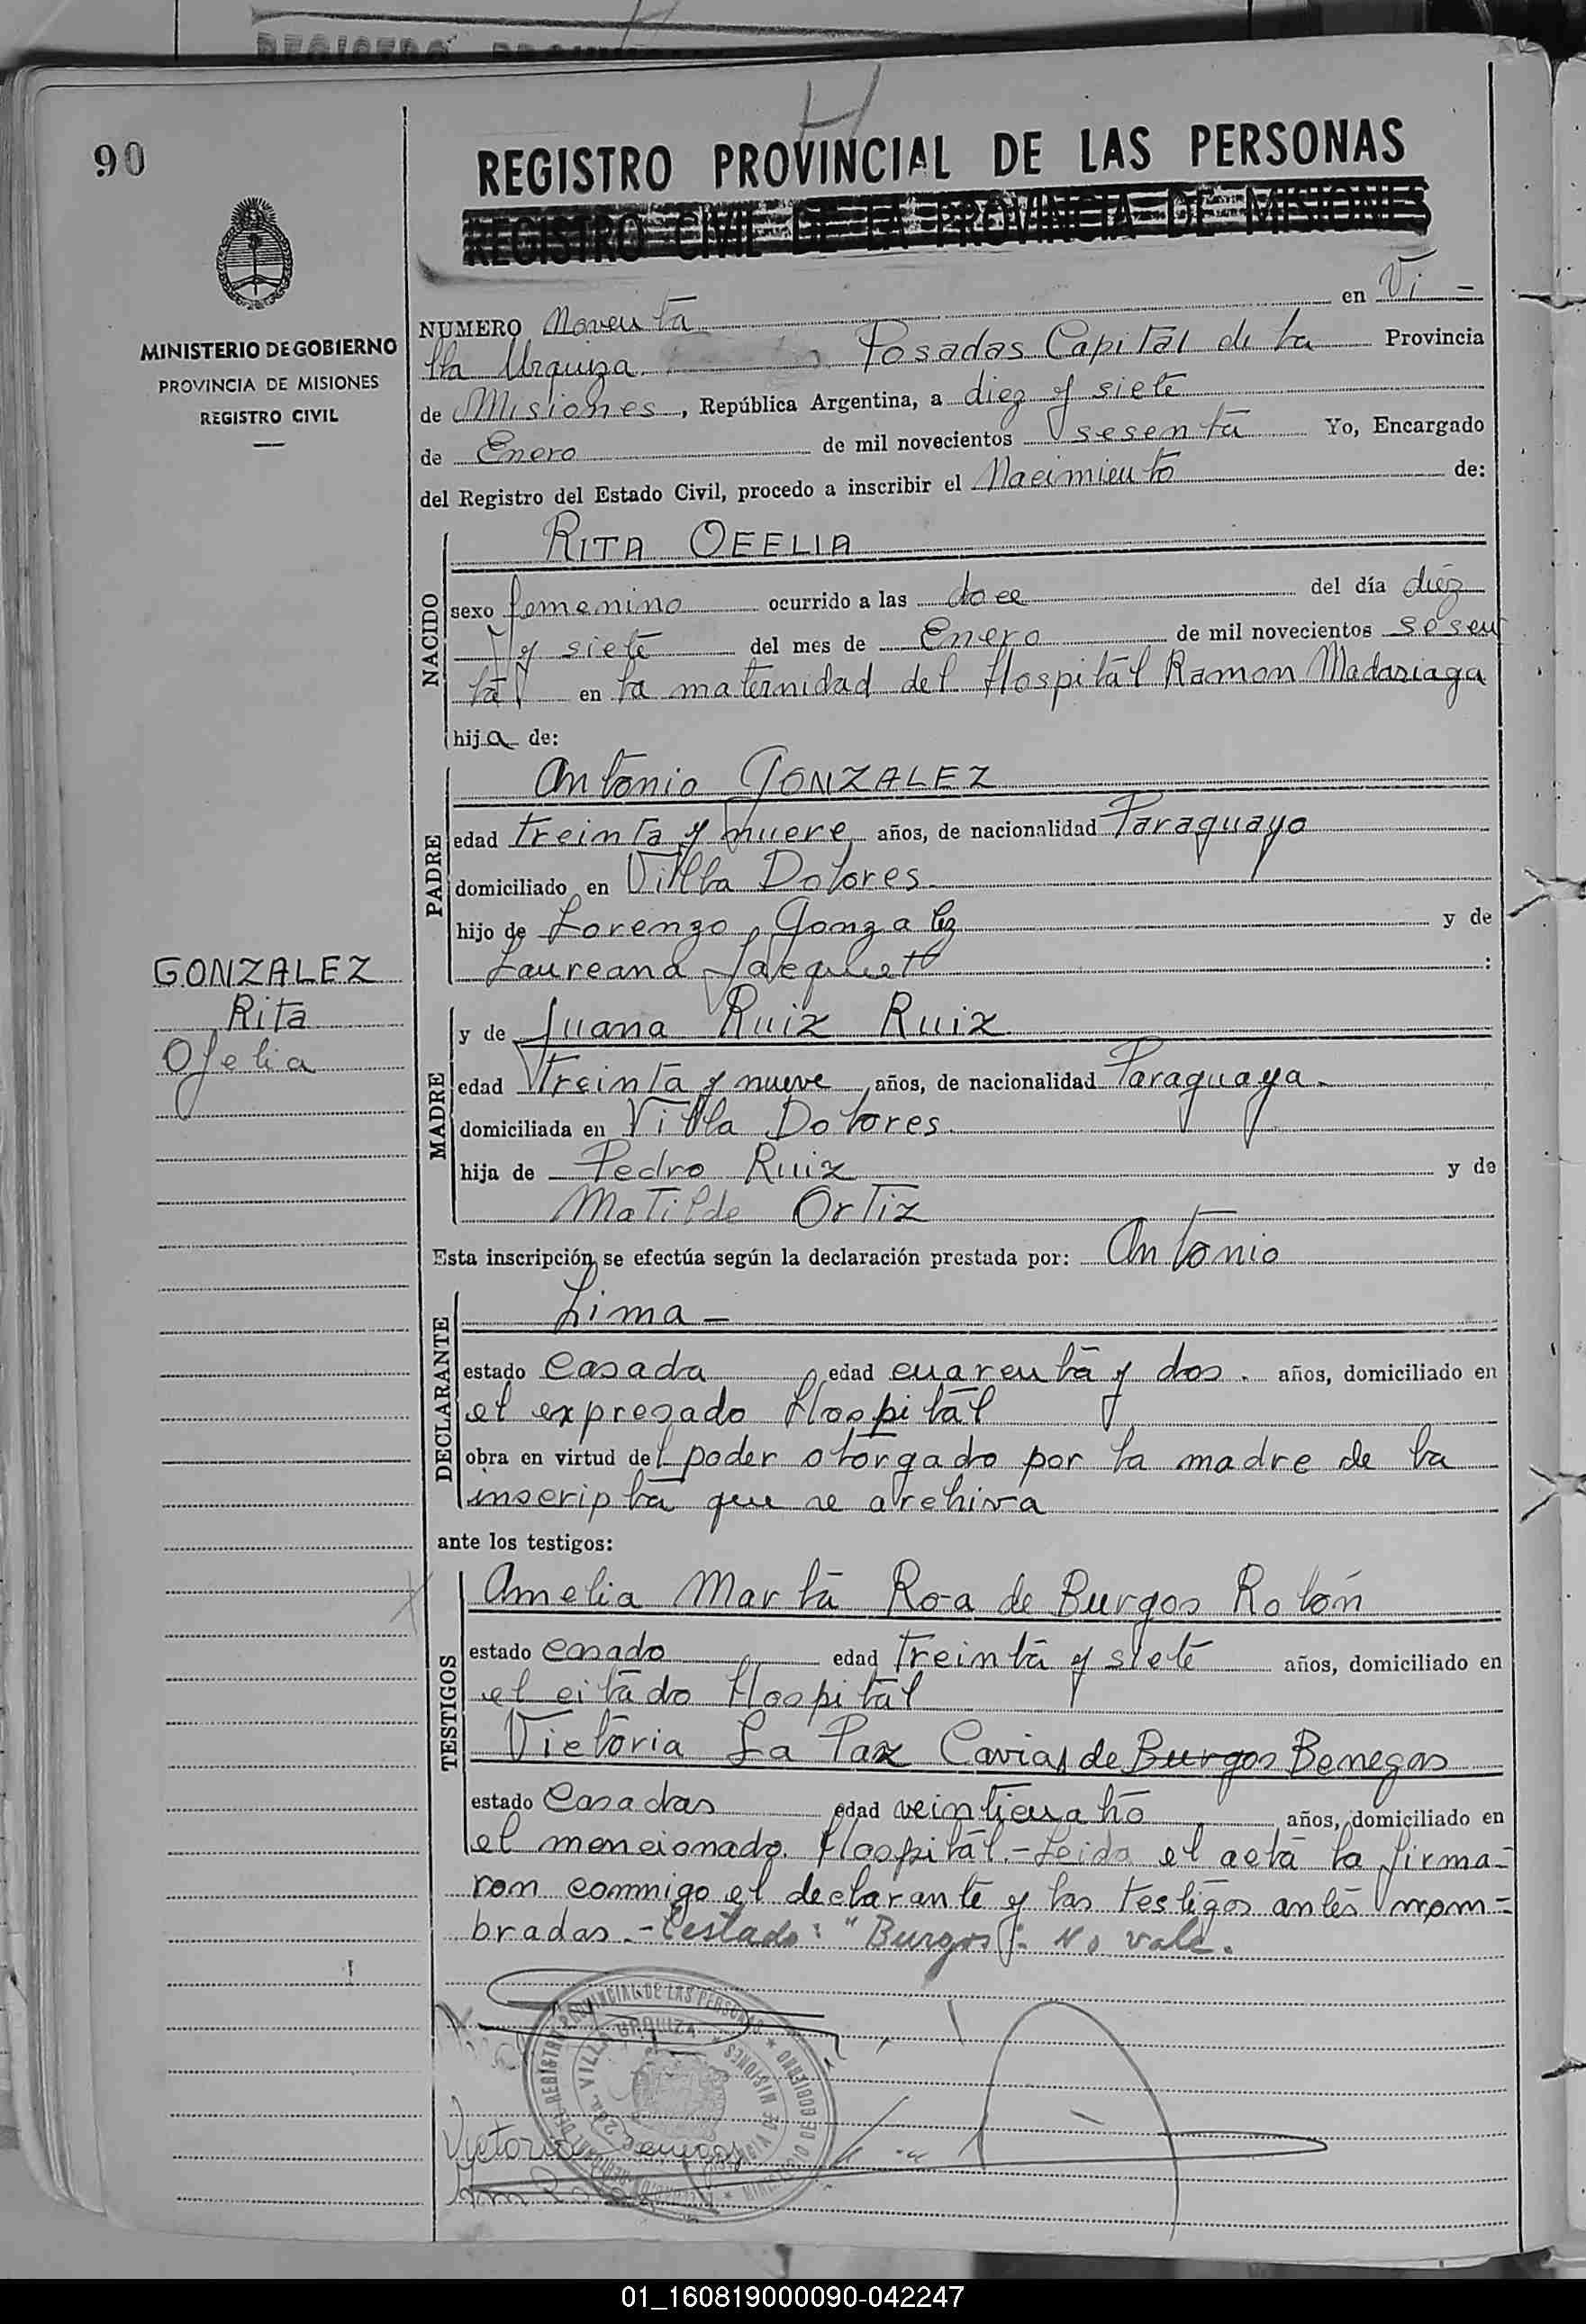 90
REGISTRO PROVINCIAL DE LAS PERSONAS
REGISTRO CIVIL DE LA PROVINCIA DE MISIONES
MINISTERIO DE GOBIERNO
PROVINCIA DE MISIONES
REGISTRO CIVIL
NUMERO Noventa en Vi -
lla Urquiza Posadas Capital de la Provincia
de Misiones, República Argentina, a diez y siete
de Enero de mil novecientos sesenta Yo, Encargado
del Registro del Estado Civil, procedo a inscribir el Nacimiento de:
NACIDO
RITA OFELIA
sexo femenino ocurrido a las doce del día diez
y siete del mes de Enero de mil novecientos sesen
ta en la maternidad del Hospital Ramon Madariaga
hija de:
PADRE
Antonio GONZALEZ
edad treinta y nueve años, de nacionalidad Paraguayo
domiciliado en Villa Dolores
hijo de Lorenzo Gonzalez y de
Laureana :
GONZALEZ
Rita
Ofelia
MADRE
y de Juana Ruiz Ruiz
edad treinta y nueve años, de nacionalidad Paraguaya-
domiciliada en Villa Dolores
hija de Pedro Ruiz y de
Matilde Ortiz
Esta inscripción se efectúa según la declaración prestada por: Antonio
DECLARANTE
Lima -
estado Casada edad cuarenta y dos. años, domiciliado en
el expresado Hospital
obra en virtud del poder otorgado por la madre de la
inscripta que se archiva
ante los testigos:
TESTIGOS
Amelia Marta Roa de Burgos Rolón
estado casado edad treinta y siete años, domiciliado en
el citado Hospital
Victoria La Paz Cavia de Burgos Benegas
estado Casadas edad veinticuatro años, domiciliado en
el mencionado Hospital.- Leida el acta la firma-
ron conmigo el declarante y las testigos antes nom=
bradas.- Testado: "Burgos": No vale.
VILLA URQUIZA
MINISTERIO DE GOBIERNO
Victoria Benegas
01_160819000090-042247